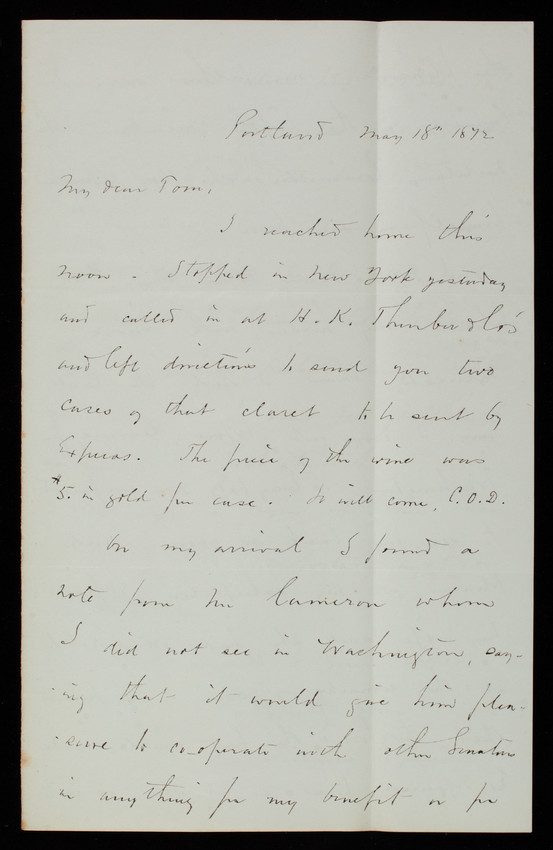 Portland May 18th 1872
My dear Tom,
I reached home this
noon. Stopped in New York yesterday
and called in at H. K. Thurber & Co's
and left directions to send you two
cases of that claret to be sent by
Express. The price of the wine was
$5. in gold per case. It will come, C.O.D.
On my arrival I found a
note from Mr Cameron whom
I did not see in Washington, say-
ing that it would give him plea-
sure to co-operate with other Senators
in anything for my benefit or for